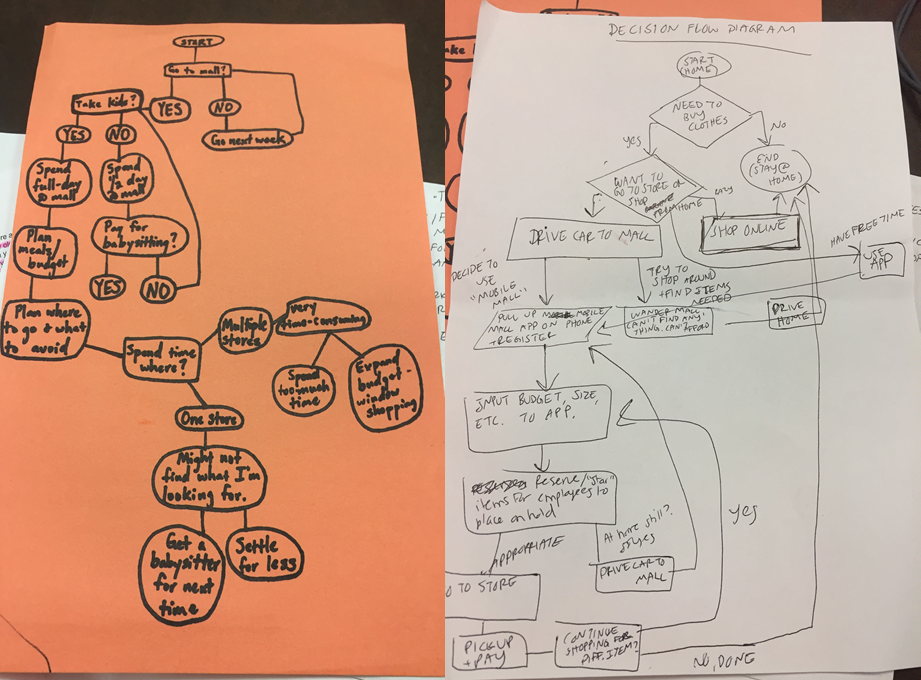 START
Go to mall?
Take kids?
YES
NO
Go next week
YES
NO
Spend
full-day
@ mall
Spend
1/2 day
@ mall
Plan
meals/
budget
Pay for
babysitting?
YES
NO
Plan where
to go & what
to avoid
Spend time
where?
Multiple
stores
very
time-consuming
Spend
too much
time
Expand
budget-
window
shopping
One store
Might not
find what I'm
looking for.
Get a
babysitter
for next
time
Settle
for less
DECISION FLOW DIAGRAM
START
(HOME)
NEED TO
BUY
CLOTHES
YES
NO
END
(STAY@
HOME)
WANT TO
GO TO STORE or
SHOP
FROM HOME
LAZY
SHOP ONLINE
DRIVE CAR TO MALL
HAVE FREE TIME
USE
APP
DECIDE TO
USE
"MOBILE
MALL"
TRY TO
SHOP AROUND
+ FIND ITEMS
NEEDED
PULL UP MOBILE
MALL APP ON PHONE
+ REGISTER
WANDER MALL
CAN'T FIND ANY-
THING. CAN'T AFFORD
DRIVE
HOME
INPUT BUDGET, SIZE,
ETC. TO APP.
Reserve/"star"
items for employees to
place on hold
At home still?
yes
APPROPRIATE
DRIVE CAR TO
MALL
YES
O TO STORE
PICKUP
+ PAY
CONTINUE
SHOPPING FOR
DIFF. ITEM?
NO, DONE